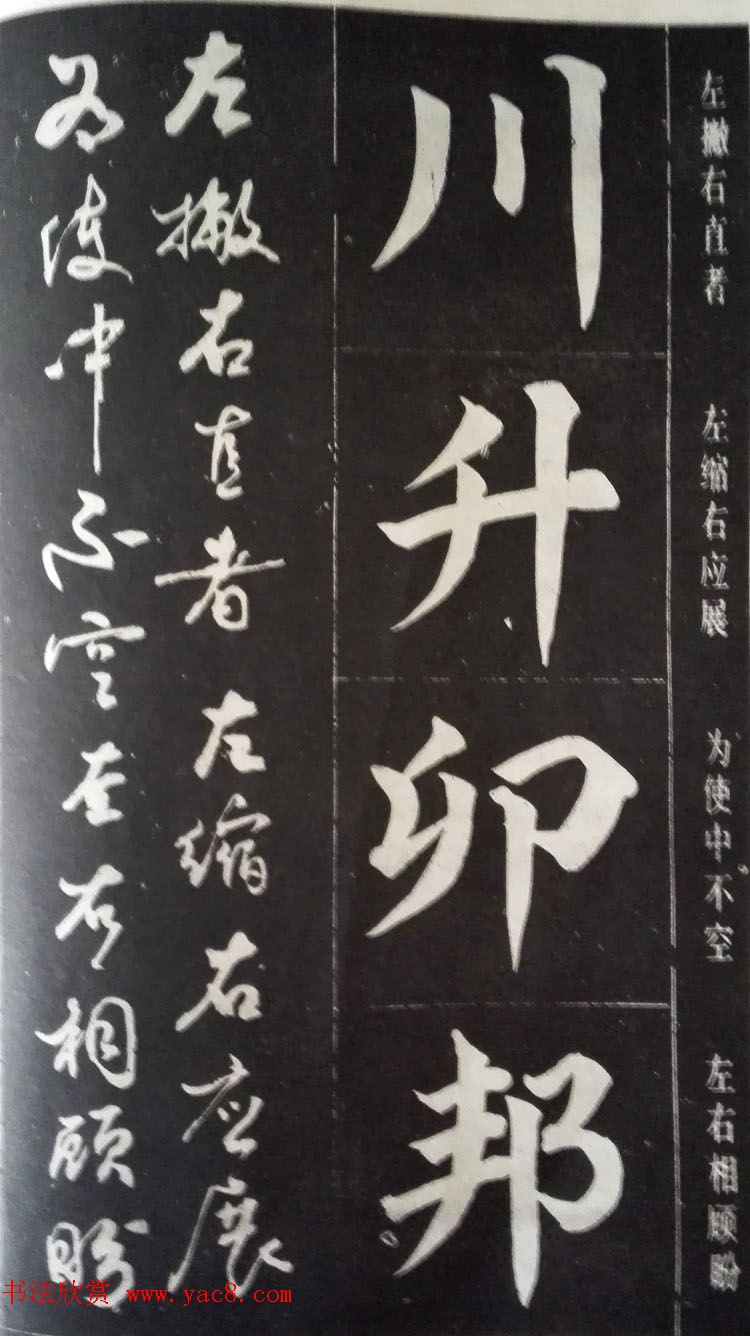 左撇右直者 左缩右应展 为使中不空 左右相顾盼
川升卯邦
左撇右直者 左缩右应展
为使中不空 左右相顾盼
书法欣赏 www.yac8.com